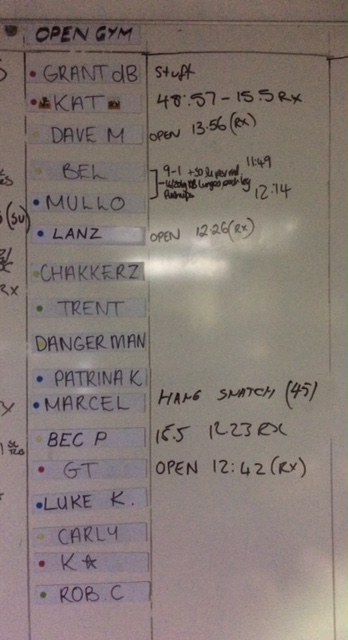 OPEN GYM
GRANT dB stuff
KAT 48:57 - 15.5 RX
DAVE M OPEN 13:56 (RX)
BEL 9-1 11:49
MULLO 12:14
LANZ OPEN 12:26 (RX)
CHAKKERZ
TRENT
DANGERMAN
PATRINA K
MARCEL HANG SNATCH (45)
BEC P 15.5 12.23 RX
GT OPEN 12:42 (RX)
LUKE K.
CARLY
K☆
ROB C
(SU)
RX